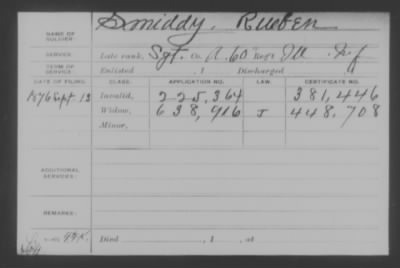 NAME OF SOLDIER: Smiddy, Rueben
SERVICE: Late rank, Sgt. Co. A. 60 Reg't Ill Inf
TERM OF SERVICE: Enlisted , 1 Discharged , 1
DATE OF FILING. CLASS. APPLICATION NO. LAW. CERTIFICATE NO.
1876 Sept. 13 Invalid, 225,364 381,446
Widow, 638,916 J 448,708
Minor,
ADDITIONAL SERVICES:
REMARKS:
Died , 1 , at